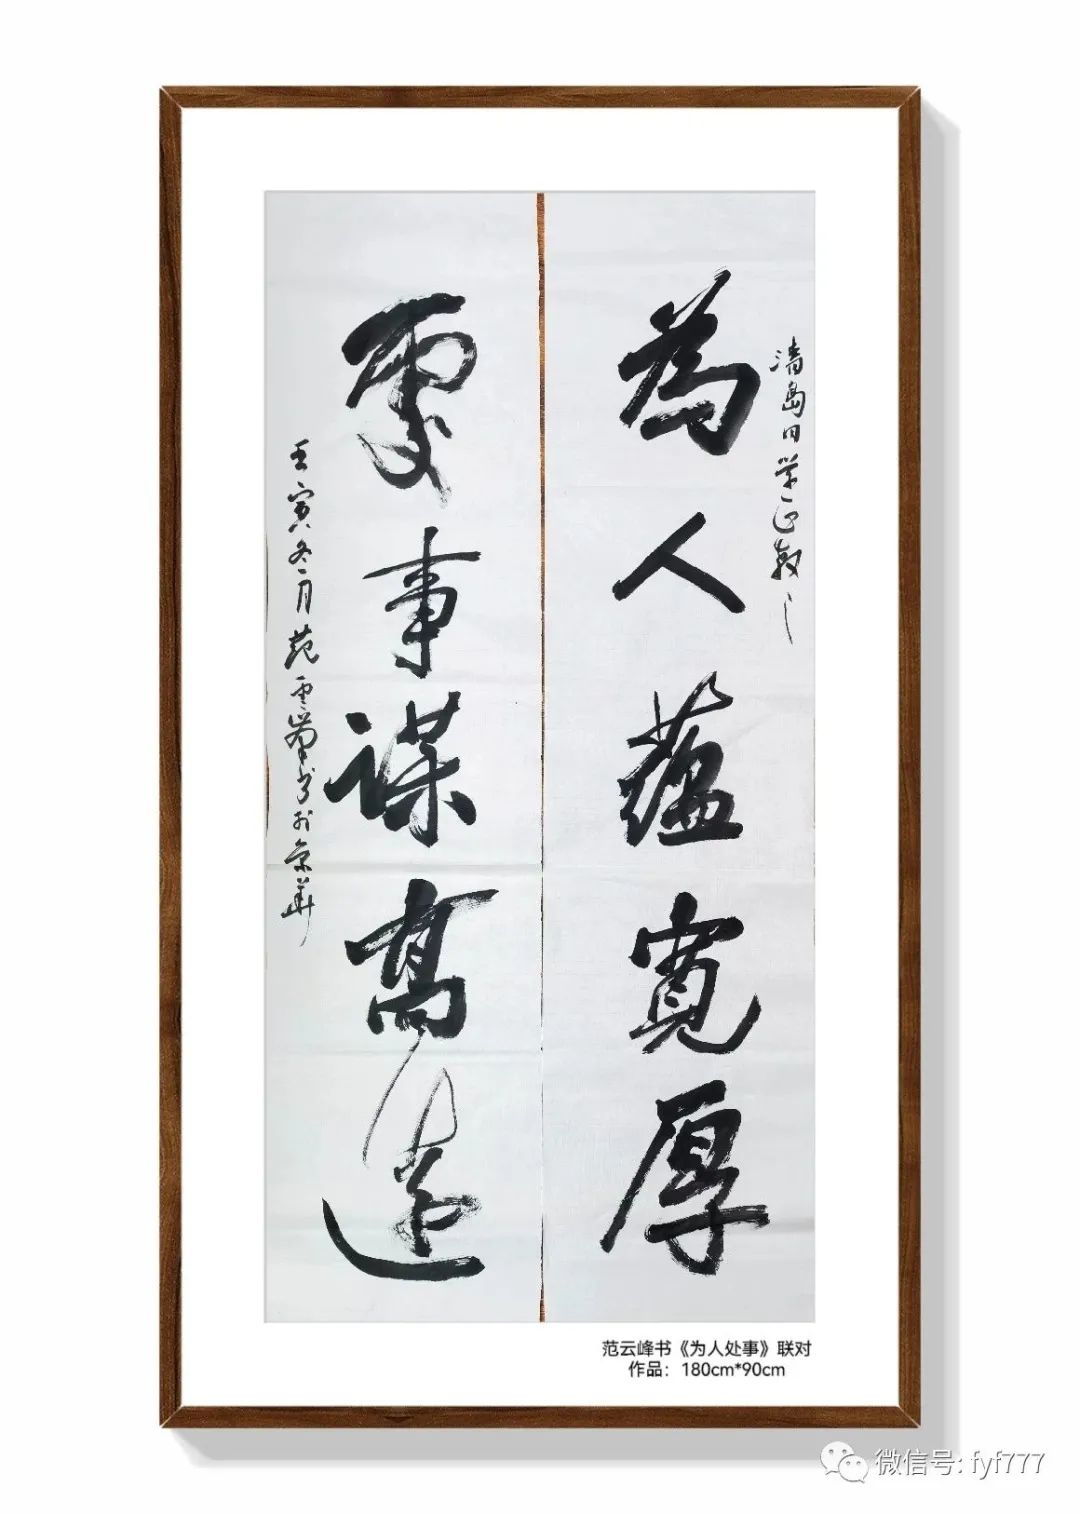 清島同学正教之
為人蘊寬厚
處事謀高遠
壬寅冬月范雲峯书於京華
范云峰书《为人处事》联对
作品：180cm*90cm
微信号: fyf777